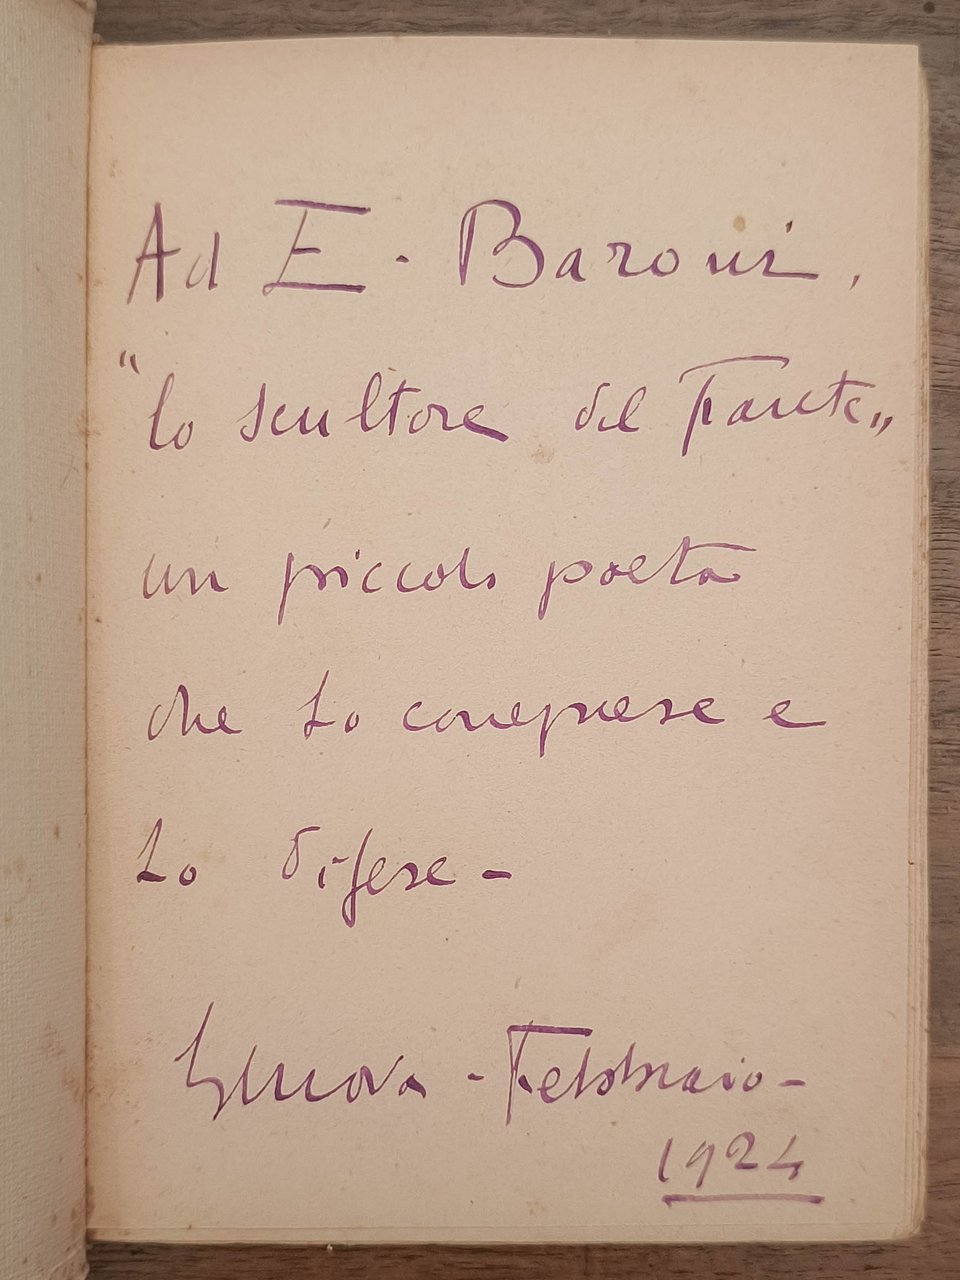 Ad E. Baroni,
"lo scultore del Fante"
un piccolo poeta
che Lo comprese e
Lo difese -
Genova - Febbraio -
1924